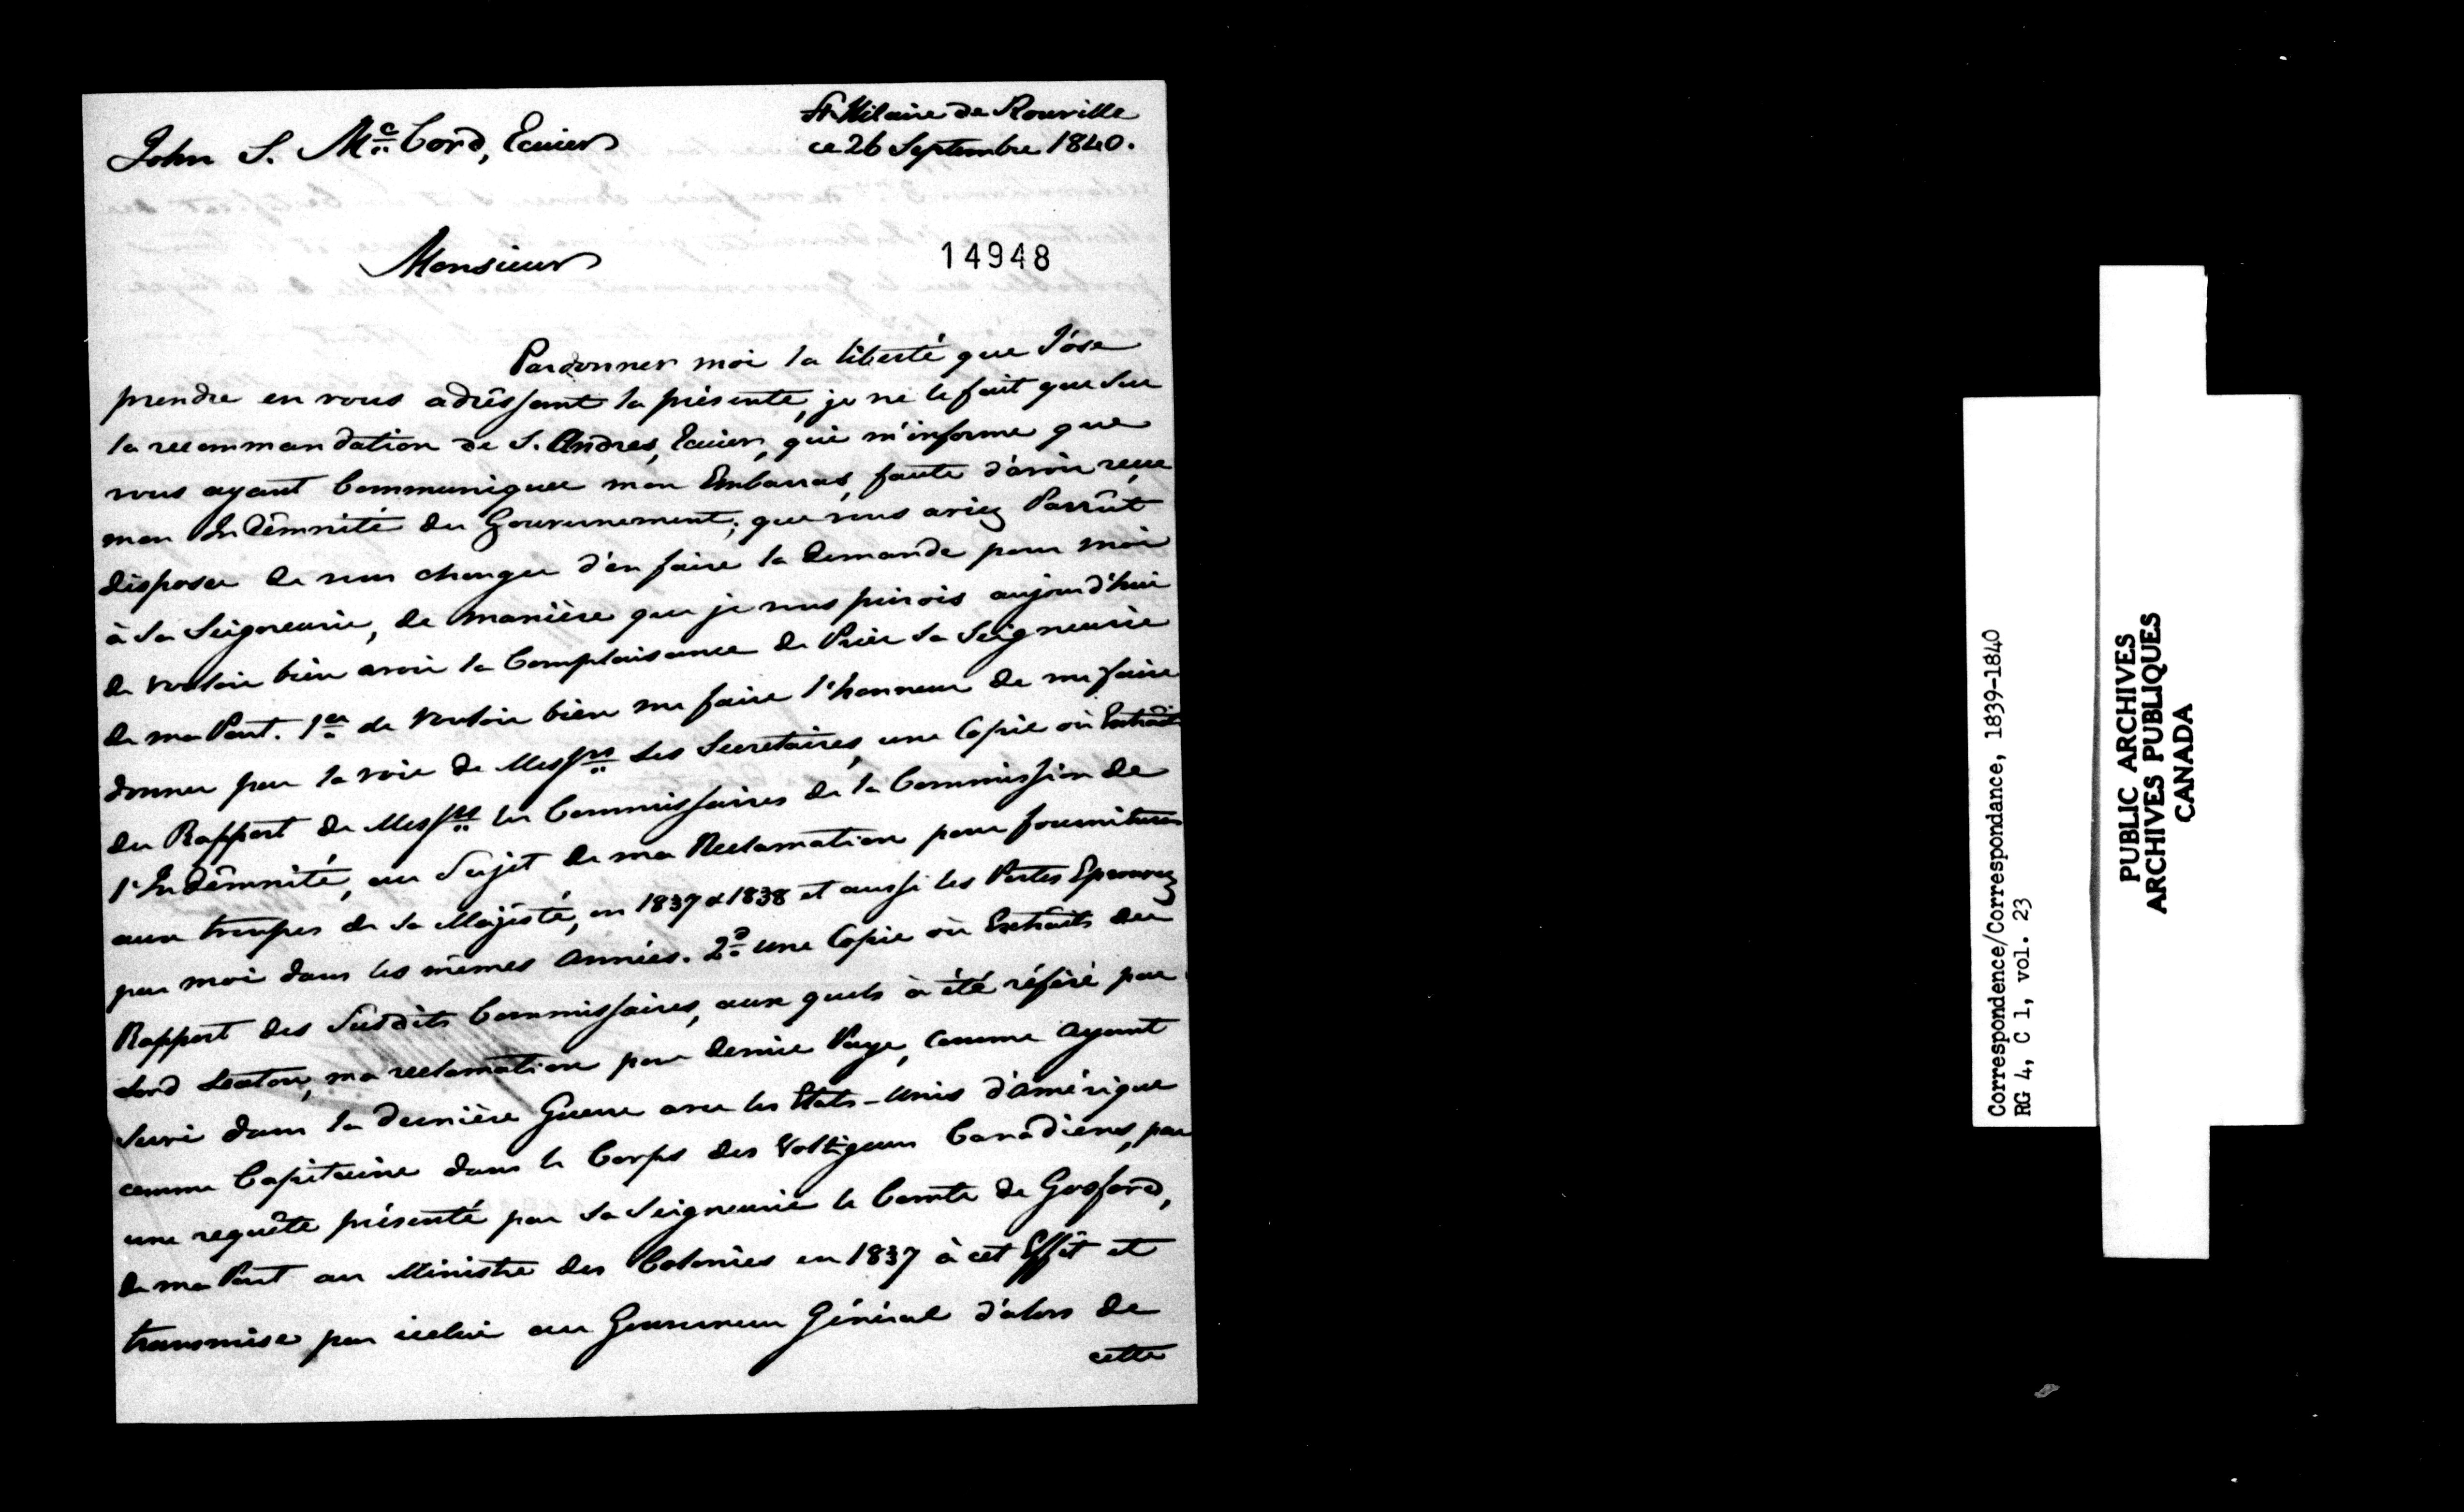 St. Hilaire de Rouville
ce 26 Septembre 1840.
John S. McCord, Ecuier
Monsieur
14948
Pardonner moi la liberté que J'óse
prendre en vous adrêssant la présente, je ne le fait que sur
la recommandation de S. Andres, Ecuier, qui m'informe que
vous ayant Communiquer mon Embarras, faute d'avoir reçue
mon Indêmnité du Gouvernement; que vous aviez Parrût
disposer de vous charger d'en faire la demande pour moi
à Sa Seigneurie, de manière que je vous prirois aujourd'hui
de vouloir bien avoir la Complaisance de Prier Sa Seigneurie
de ma Part. 1er de vouloir bien me faire l'honneur de me faire
donner par la voie de Messrs Les Secretaires, une Copie où Extrait
du Rapport de Messrs les Commissaires de la Commission de
l'Indêmnité, au Sujet de ma Reclamation pour fournitures
aux troupes de Sa Majésté, en 1837 & 1838 et aussi les Pertes Eprouvez
par moi dans les mêmes Années. 2o une Copie où Extraits du
Rapport des Susdits Commissaires, aux quels à été référé par
Lord Seaton, ma reclamation pour demie Paye, comme ayant
Servi dans la dernière Guerre avec les Etats-Unis d'Amérique
comme Capitaine dans le Corps des Voltigeurs Canadiens, par
une requête présenté par Sa Seigneurie le Comte de Gosford,
de ma Part au Ministre des Colonies en 1837 à cet Effêt et
transmise par icelui au Gouverneur Général d'alors de
cette
Correspondence/Correspondance, 1839-1840
RG 4, C 1, vol. 23
PUBLIC ARCHIVES
ARCHIVES PUBLIQUES
CANADA